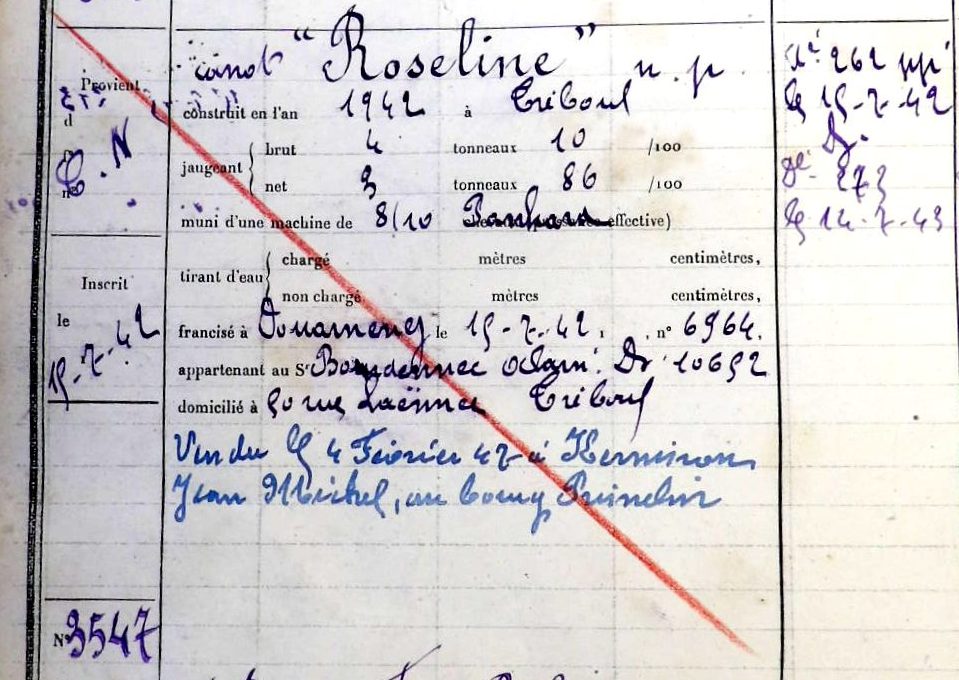 Provient
C. N
Inscrit
le
15-7-42
N° 3547
canot "Roseline" n. p.
construit en l'an 1942 à Tréboul
jaugeant { brut 4 tonneaux 10 /100
net 3 tonneaux 86 /100
muni d'une machine de 8/10 Panhard effective)
tirant d'eau { chargé mètres centimètres,
non chargé mètres centimètres,
francisé à Douarnenez le 15-7-42, n° 6964.
appartenant au Sr Dz 10652
domicilié à 50 rue Laënnec Tréboul
Vendu le 4 Février 47 à
Jean Michel, au bourg
262
le 15-7-42
Dz.
273
le 12-7-43